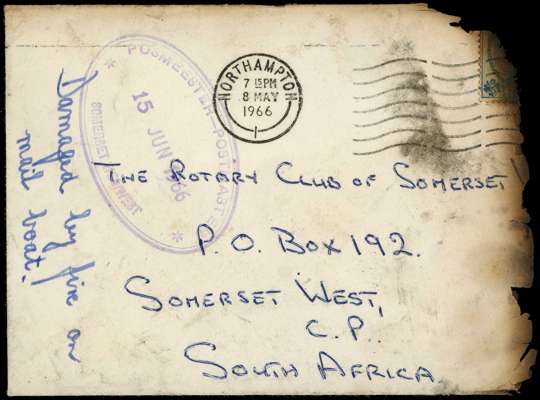 NORTHAMPTON
7 15PM
8 MAY
1966
POSMEESTER
15 JUN 1966
SOMERSET WEST
Damaged by fire on
mail boat.
THE ROTARY CLUB OF SOMERSET
P.O. BOX 192.
SOMERSET WEST,
C.P.
SOUTH AFRICA